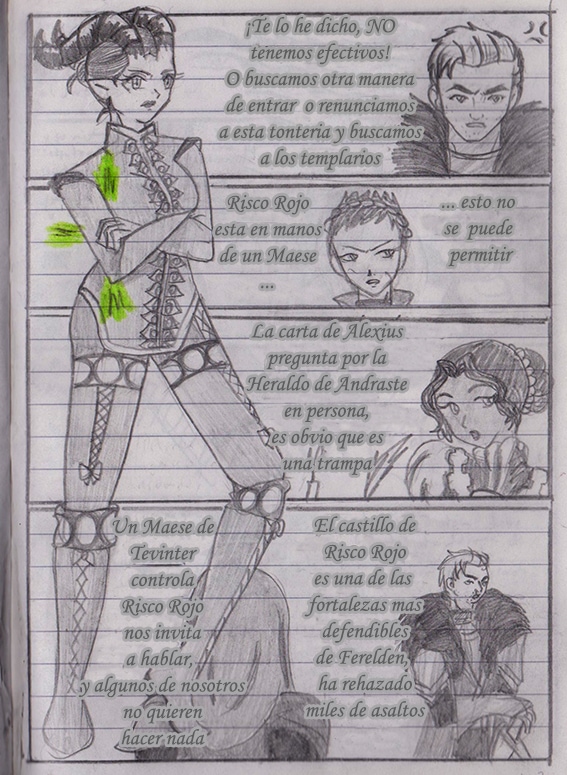 ¡Te lo he dicho, NO
tenemos efectivos!
O buscamos otra manera
de entrar o renunciamos
a esta tonteria y buscamos
a los templarios
Risco Rojo
esta en manos
de un Maese
...
... esto no
se puede
permitir
La carta de Alexius
pregunta por la
Heraldo de Andraste
en persona,
es obvio que es
una trampa
Un Maese de
Tevinter
controla
Risco Rojo
nos invita
a hablar,
y algunos de nosotros
no quieren
hacer nada
El castillo de
Risco Rojo
es una de las
fortalezas mas
defendibles
de Ferelden,
ha rehazado
miles de asaltos